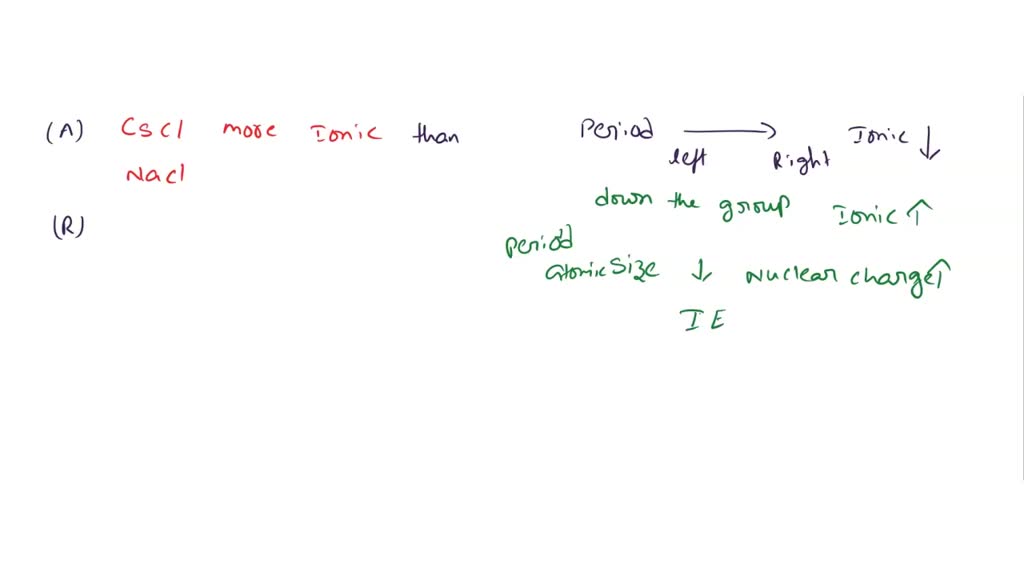 (A) CsCl more Ionic than
NaCl
(R)
Period → Ionic ↓
left Right
down the group Ionic ↑
Period
atomic size ↓ Nuclear charge ↑
IE